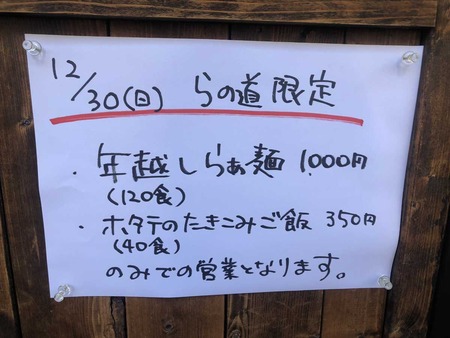 12/30(日) らの道限定
・年越しらぁ麺 1,000円
(120食)
・ホタテのたきこみご飯 350円
(40食)
のみでの営業となります。